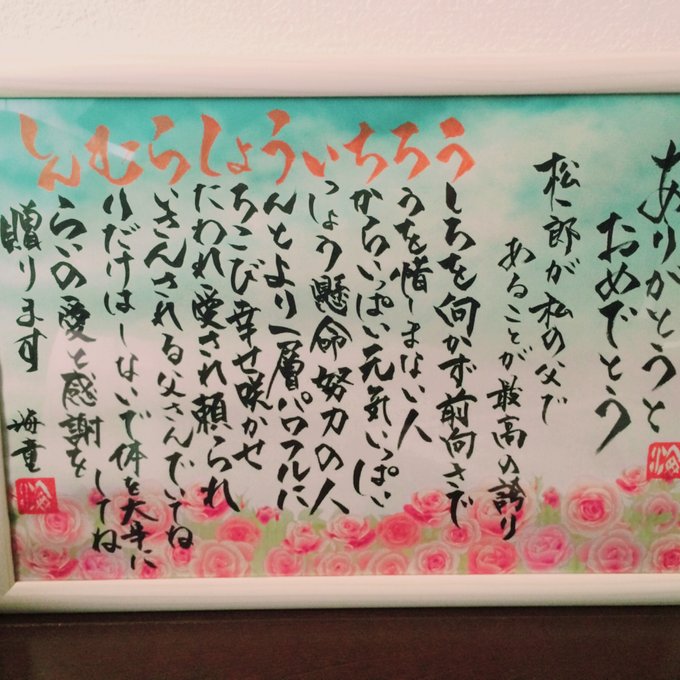 ありがとうと
おめでとう
松一郎が私の父で
あることが最高の誇り
しんむらしょういちろう
しろを向かず前向きで
うを惜しまない人
からいっぱい元気いっぱい
っしょう懸命努力の人
んとより一層パワフルに
ろこび幸せ咲かせ
たわれ愛され頼られ
いさんされる父さんでいてね
りだけはしないで体を大事にしてね
らいの愛と感謝を
贈ります
海童